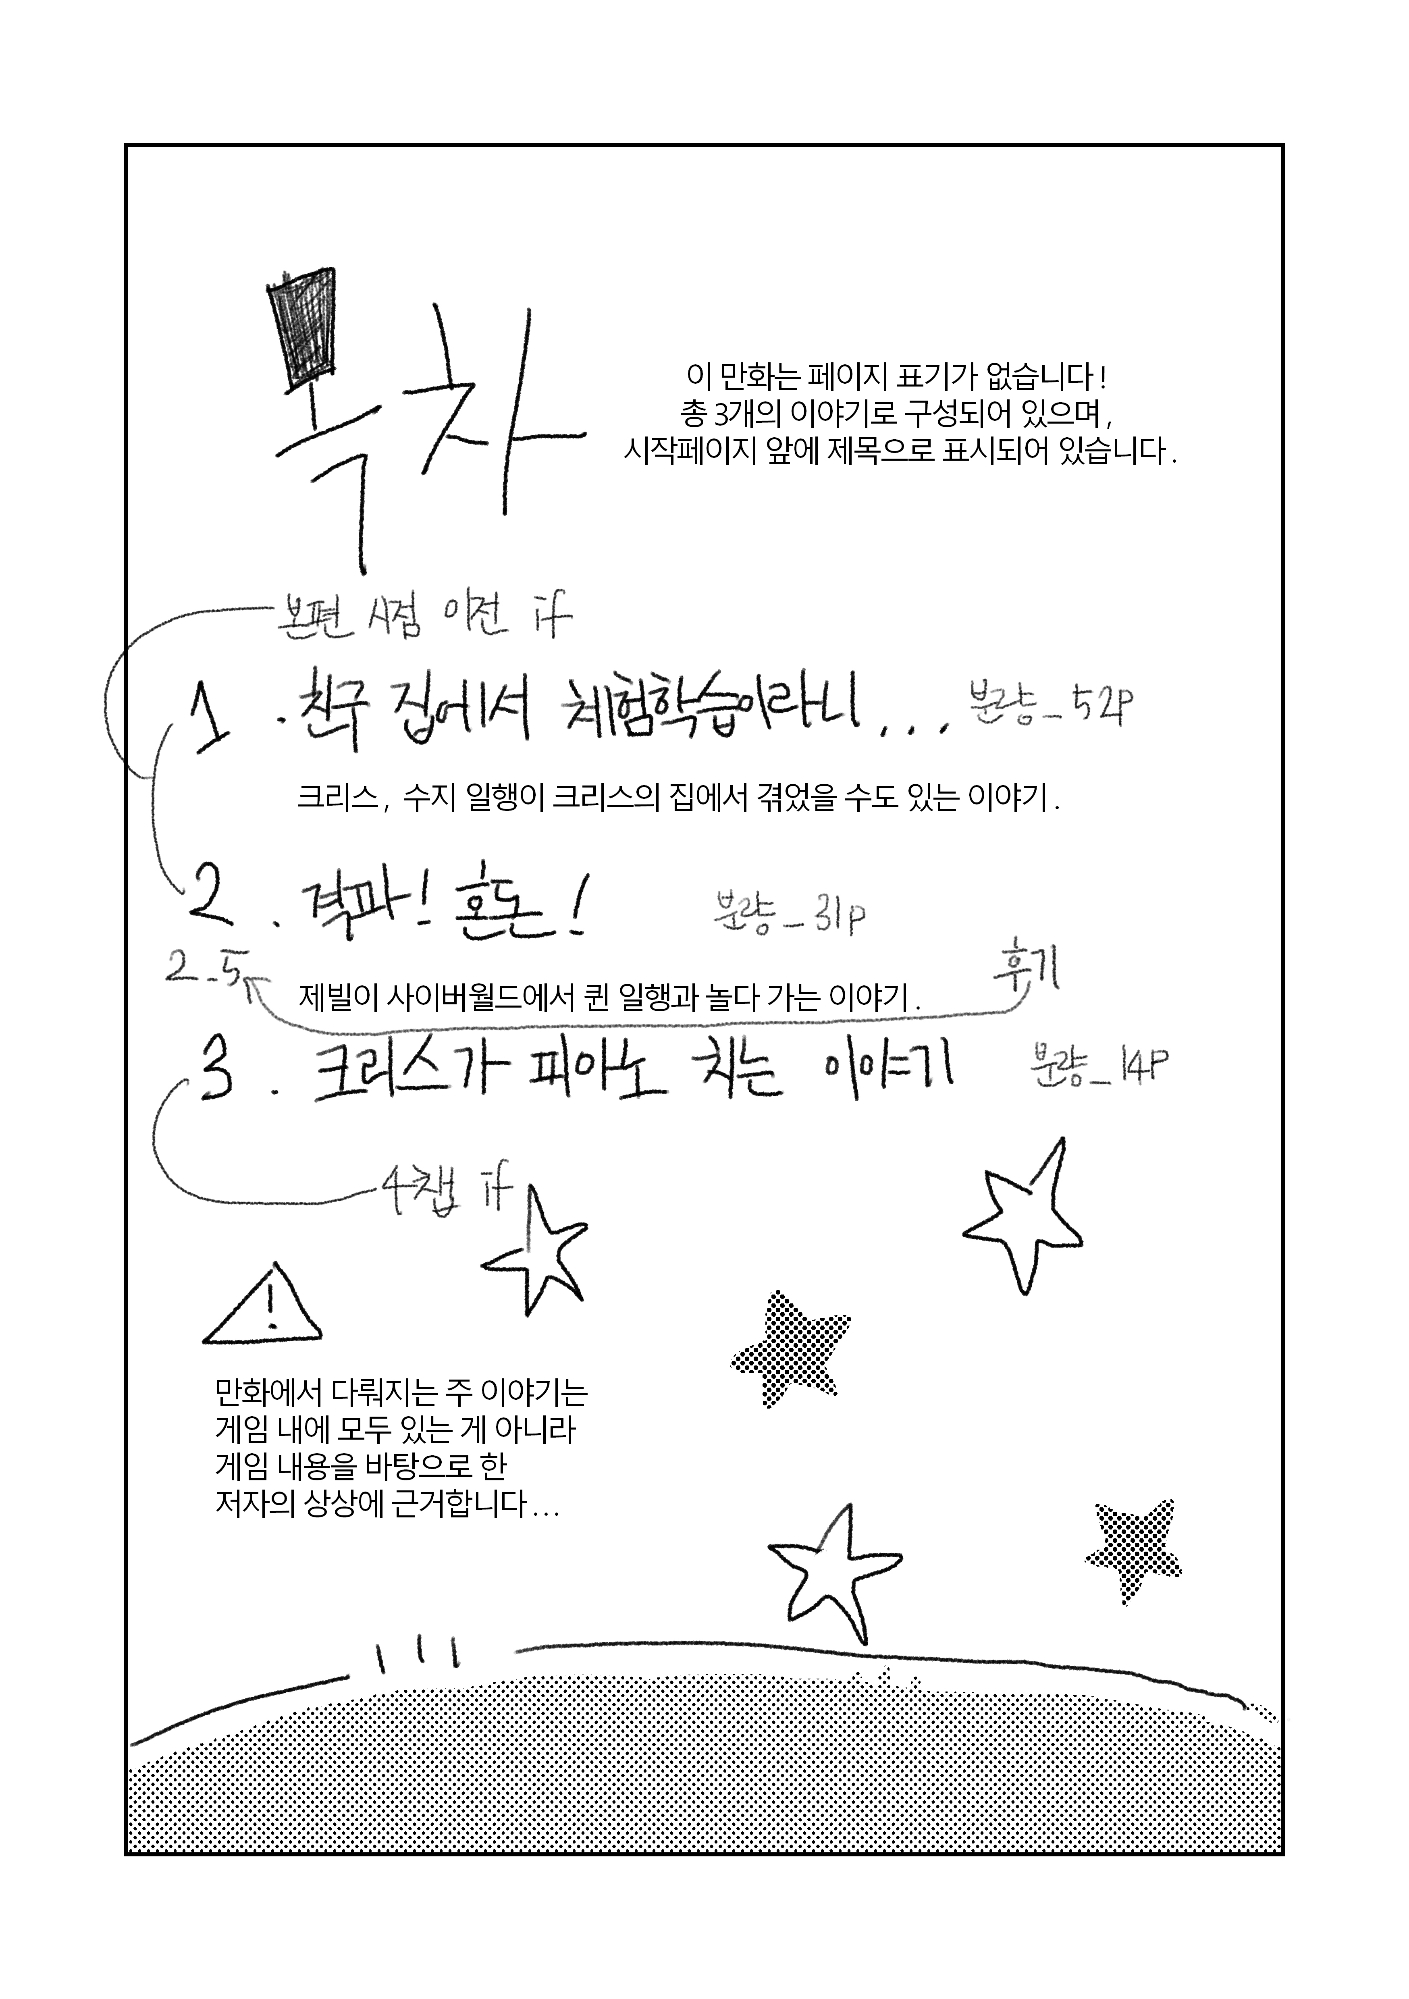 목차
이 만화는 페이지 표기가 없습니다!
총 3개의 이야기로 구성되어 있으며,
시작페이지 앞에 제목으로 표시되어 있습니다.
본편 시점 이전 if
1. 친구 집에서 체험학습이라니... 분량_52P
크리스, 수지 일행이 크리스의 집에서 겪었을 수도 있는 이야기.
2. 격파! 혼돈! 분량_31P
2.5 후기
제빌이 사이버월드에서 퀸 일행과 놀다 가는 이야기.
3. 크리스가 피아노 치는 이야기 분량_14P
4챕 if
!
만화에서 다뤄지는 주 이야기는
게임 내에 모두 있는 게 아니라
게임 내용을 바탕으로 한
저자의 상상에 근거합니다...